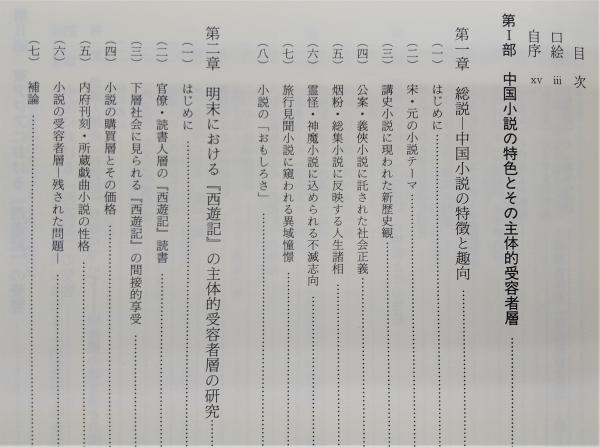 目次
口絵 iii
自序 xv
第Ⅰ部 中国小説の特色とその主体的受容者層
第一章 総説―中国小説の特徴と趣向
(一) はじめに
(二) 宋・元の小説テーマ
(三) 講史小説に現われた新歴史観
(四) 公案・義俠小説に託された社会正義
(五) 烟粉・総集小説に反映する人生諸相
(六) 霊怪・神魔小説に込められる不滅志向
(七) 旅行見聞小説に窺われる異域憧憬
(八) 小説の「おもしろさ」
第二章 明末における『西遊記』の主体的受容者層の研究
(一) はじめに
(二) 官僚・読書人層の『西遊記』読書
(三) 下層社会に見られる『西遊記』の間接的享受
(四) 小説の購買層とその価格
(五) 内府刊刻・所蔵戯曲小説の性格
(六) 小説の受容者層―残された問題―
(七) 補論